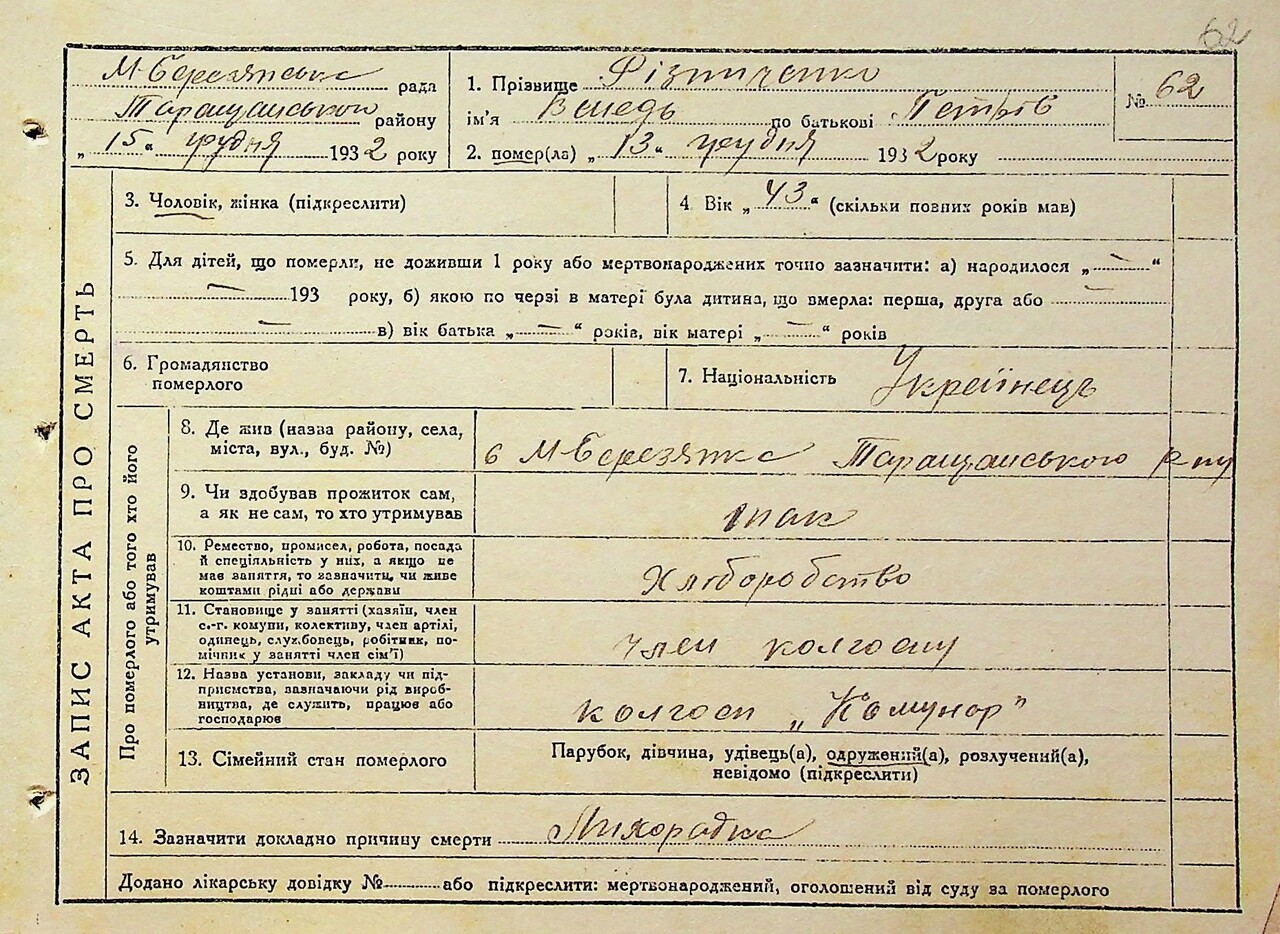 62
М-Березянська рада
Таращанського району
„ 15 “ грудня 1932 року
1. Прізвище Різниченко
ім'я по батькові Петрів
№ 62
2. помер(ла) „ 13 “ грудня 1932 року
ЗАПИС АКТА ПРО СМЕРТЬ
3. Чоловік, жінка (підкреслити)
4 Вік „ 43 “ (скільки повних років мав)
5. Для дітей, що померли, не доживши 1 року або мертвонароджених точно зазначити: а) народилося „ — “
— 193 року, б) якою по черзі в матері була дитина, що вмерла: перша, друга або —
— в) вік батька „ — “ років, вік матері „ — “ років
6. Громадянство
померлого
7. Національність Украіїнець
Про померлого або того хто його
утримував
8. Де жив (назва району, села,
міста, вул., буд. №)
в М-Березянка Таращанського р-ну
9. Чи здобував прожиток сам,
а як не сам, то хто утримував
так
10. Ремество, промисел, робота, посада
й спеціяльність у них, а якщо не
мав заняття, то зазначити, чи живе
коштами рідні або держави
Хлюборобство
11. Становище у занятті (хазяїн, член
с.-г. комуни, колективу, член артілі,
одинець, службовець, робітник, по-
мічник у занятті член сім'ї)
член колгоспу
12. Назва установи, закладу чи під-
приємства, зазначаючи рід вироб-
ництва, де служить, працює або
господарює
колгосп „Комунар"
13. Сімейний стан померлого
Парубок, дівчина, удівець(а), одружений(а), розлучений(а),
невідомо (підкреслити)
14. Зазначити докладно причину смерти Лихорадка
Додано лікарську довідку № або підкреслити: мертвонароджений, оголошений від суду за померлого